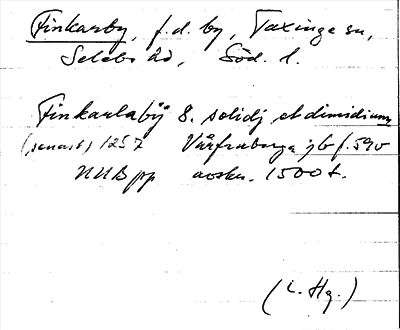 Finkarby, f.d. by, Taxinge sn,
Selebo hd, Söd. l.
Finkarlabÿ 8. solidj et dimidium
(senast) 1257 Vårfruberga jb f. 590
NHB pp avskr. 1500 t.
(L. Hg.)